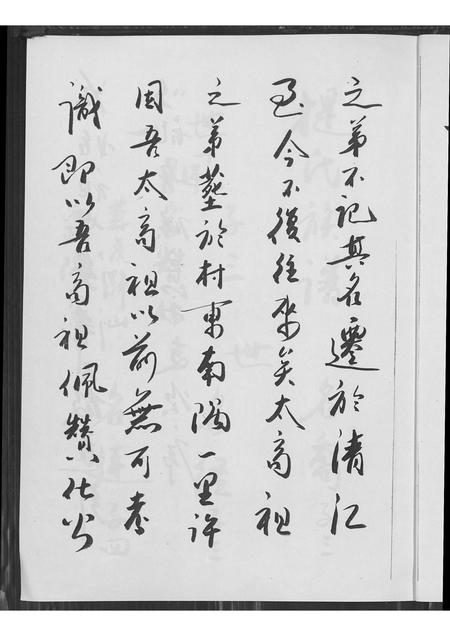 之弟不記其名遷於清江
至今不復往來矣太高祖
之弟塟於村東南隅一里許
因吾太高祖以前無可考
識即以吾高祖佩